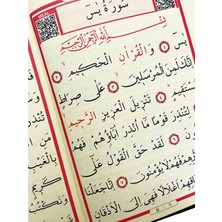 سُورَةُ يٰسٓ
بِسْمِ اللّٰهِ الرَّحْمٰنِ الرَّحِيمِ
يٰسٓ ١ وَالْقُرْاٰنِ الْحَكِيمِ ٢
اِنَّكَ لَمِنَ الْمُرْسَلِينَ ٣ عَلٰى صِرَاطٍ
مُسْتَقِيمٍ ٤ تَنْزِيلَ الْعَزِيزِ الرَّحِيمِ ٥
لِتُنْذِرَ قَوْمًا مَٓا اُنْذِرَ اٰبَٓاؤُ۬هُمْ فَهُمْ
لَقَدْ حَقَّ الْقَوْلُ عَلٰٓى
فَهُمْ لَا يُؤْمِنُونَ ٧ اِنَّا جَعَلْنَا
اَغْلَالًا فَهِيَ اِلَى الْاَذْقَانِ